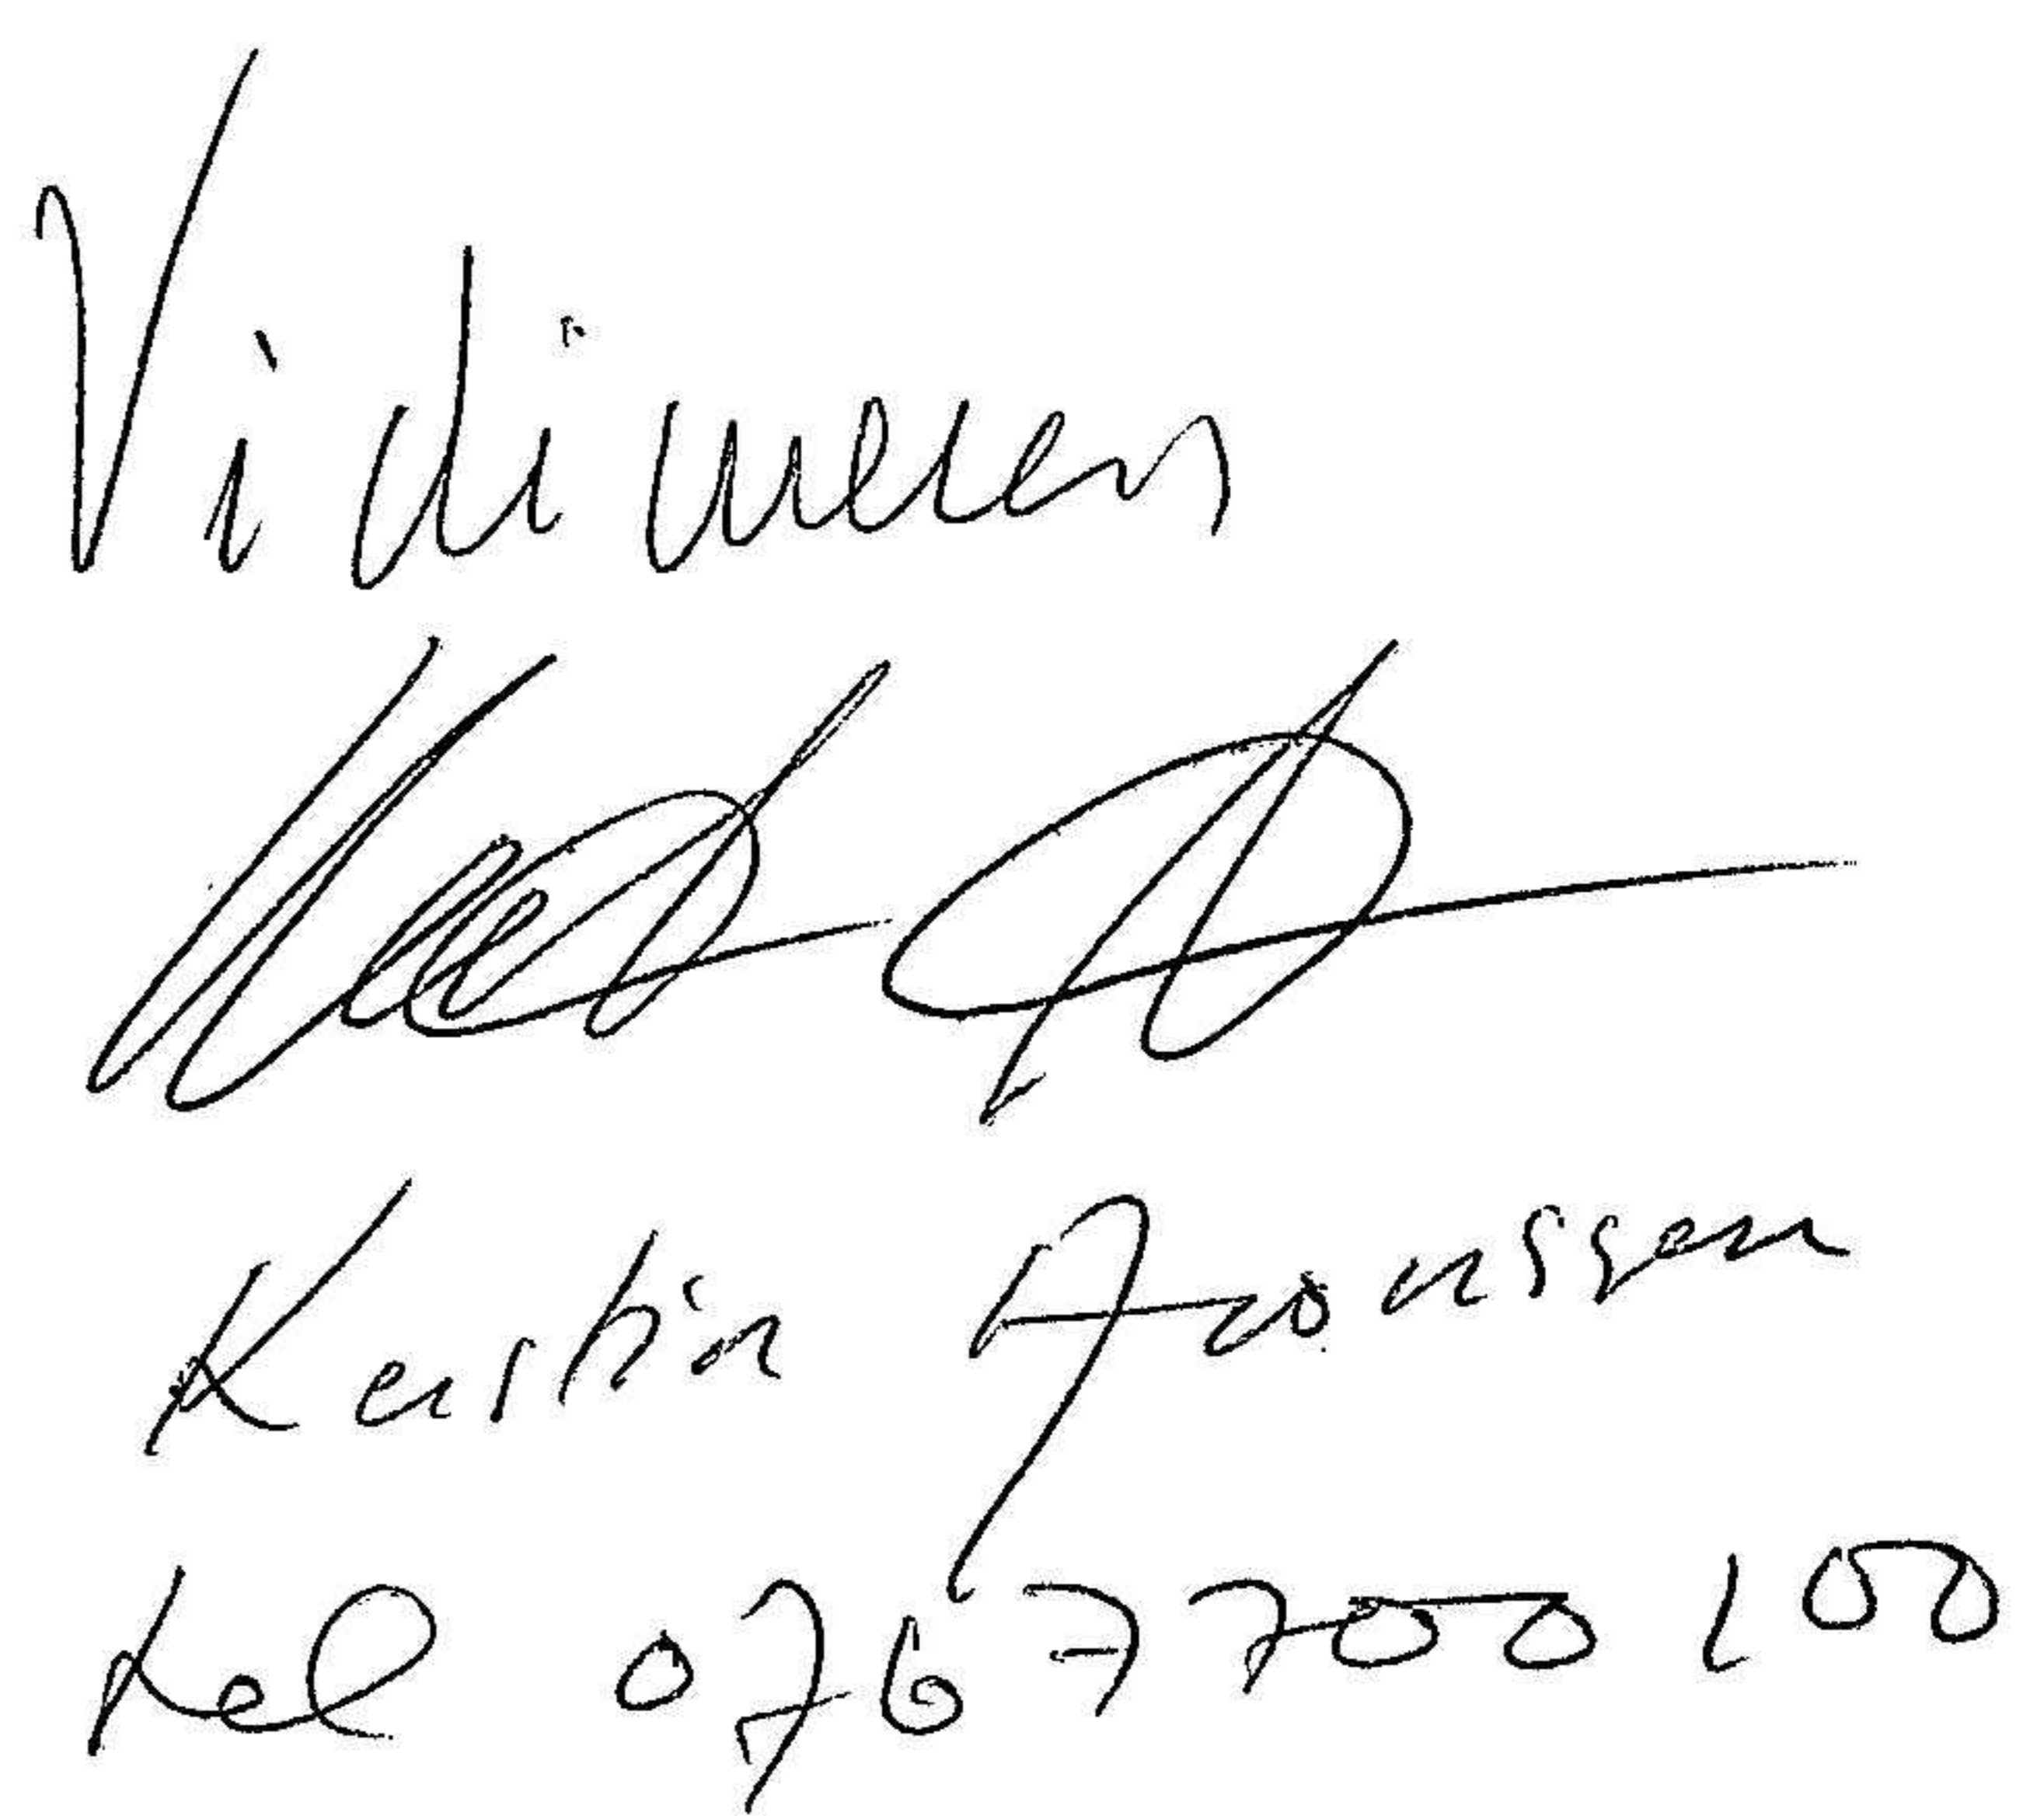 Vidimeras
Kerstin Aronssen
tel 0767700100